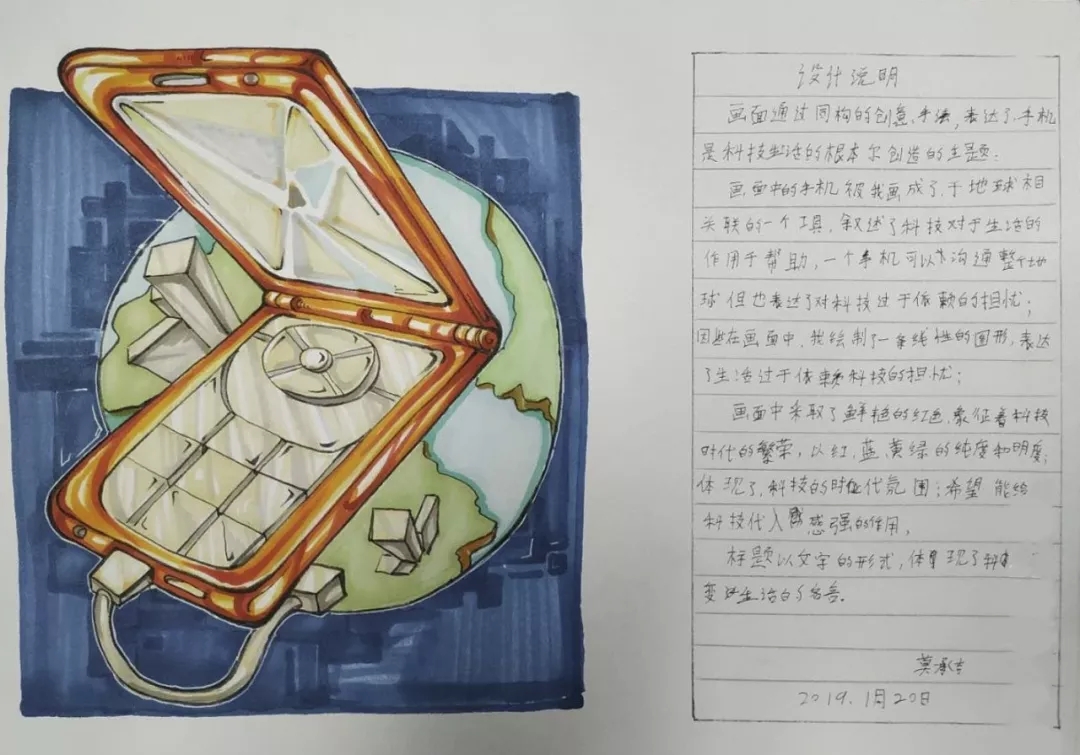 设计说明
画面通过同构的创意手法，表达了手机
是科技生活的根本尔创造的主题：
画面中的手机被我画成了于地球相
关联的一个工具，叙述了科技对于生活的
作用于帮助，一个手机可以沟通整个地
球但也表达了对科技过于依赖的担忧；
因此在画面中，我绘制了一条线性的圆形，表达
了生活过于依赖科技的担忧；
画面中采取了鲜艳的红色，象征着科技
时代的繁荣，以红、蓝、黄绿的纯度和明度，
体现了，科技的时代氛围；希望能给
科技代入感强的作用，
标题以文字的形式，体现了科
变生活的
莫承
2019.1月20日